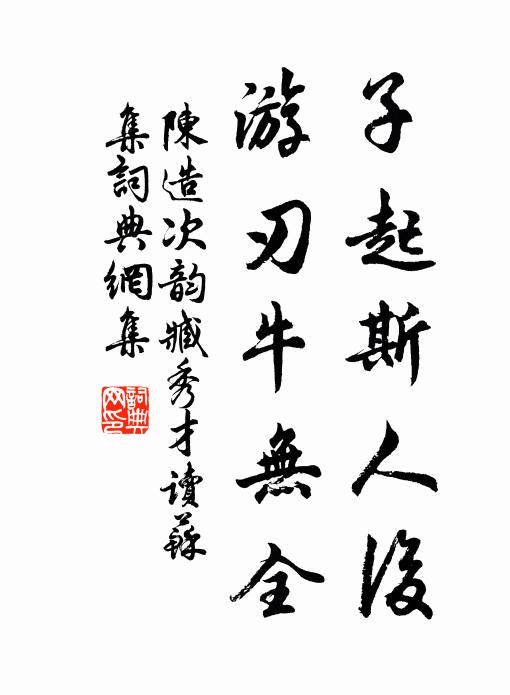 子起斯人後
游刃牛無全
陳造次韵臧秀才讀蘇
集詞典網集
詞典网印